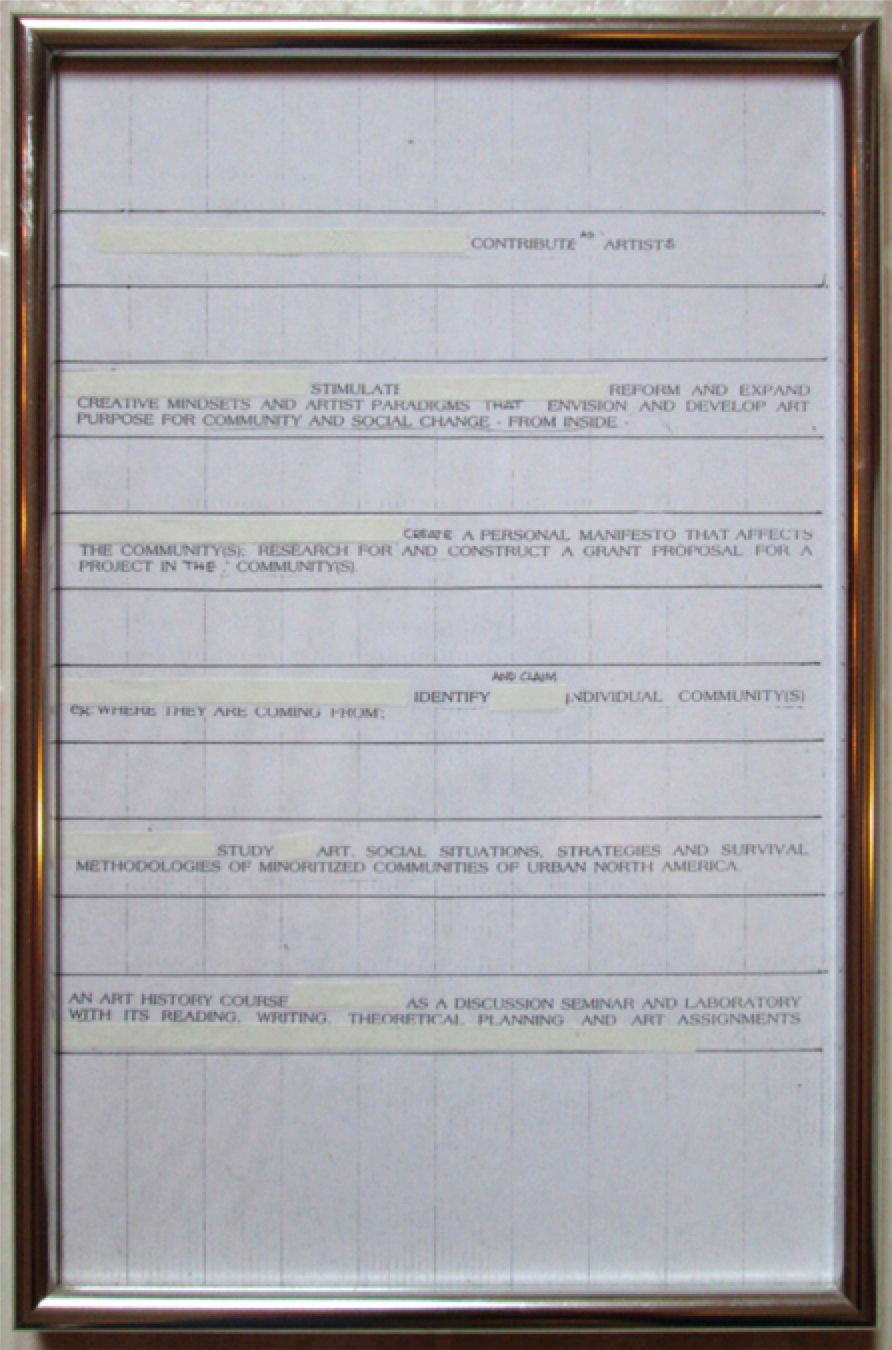 CONTRIBUTE AS ARTISTS
STIMULATE REFORM AND EXPAND
CREATIVE MINDSETS AND ARTIST PARADIGMS THAT ENVISION AND DEVELOP ART
PURPOSE FOR COMMUNITY AND SOCIAL CHANGE - FROM INSIDE -
CREATE A PERSONAL MANIFESTO THAT AFFECTS
THE COMMUNITY(S); RESEARCH FOR AND CONSTRUCT A GRANT PROPOSAL FOR A
PROJECT IN THE COMMUNITY(S).
AND CLAIM
IDENTIFY INDIVIDUAL COMMUNITY(S)
or WHERE THEY ARE COMING FROM;
STUDY ART, SOCIAL SITUATIONS, STRATEGIES AND SURVIVAL
METHODOLOGIES OF MINORITIZED COMMUNITIES OF URBAN NORTH AMERICA.
AN ART HISTORY COURSE AS A DISCUSSION SEMINAR AND LABORATORY
WITH ITS READING, WRITING, THEORETICAL PLANNING AND ART ASSIGNMENTS